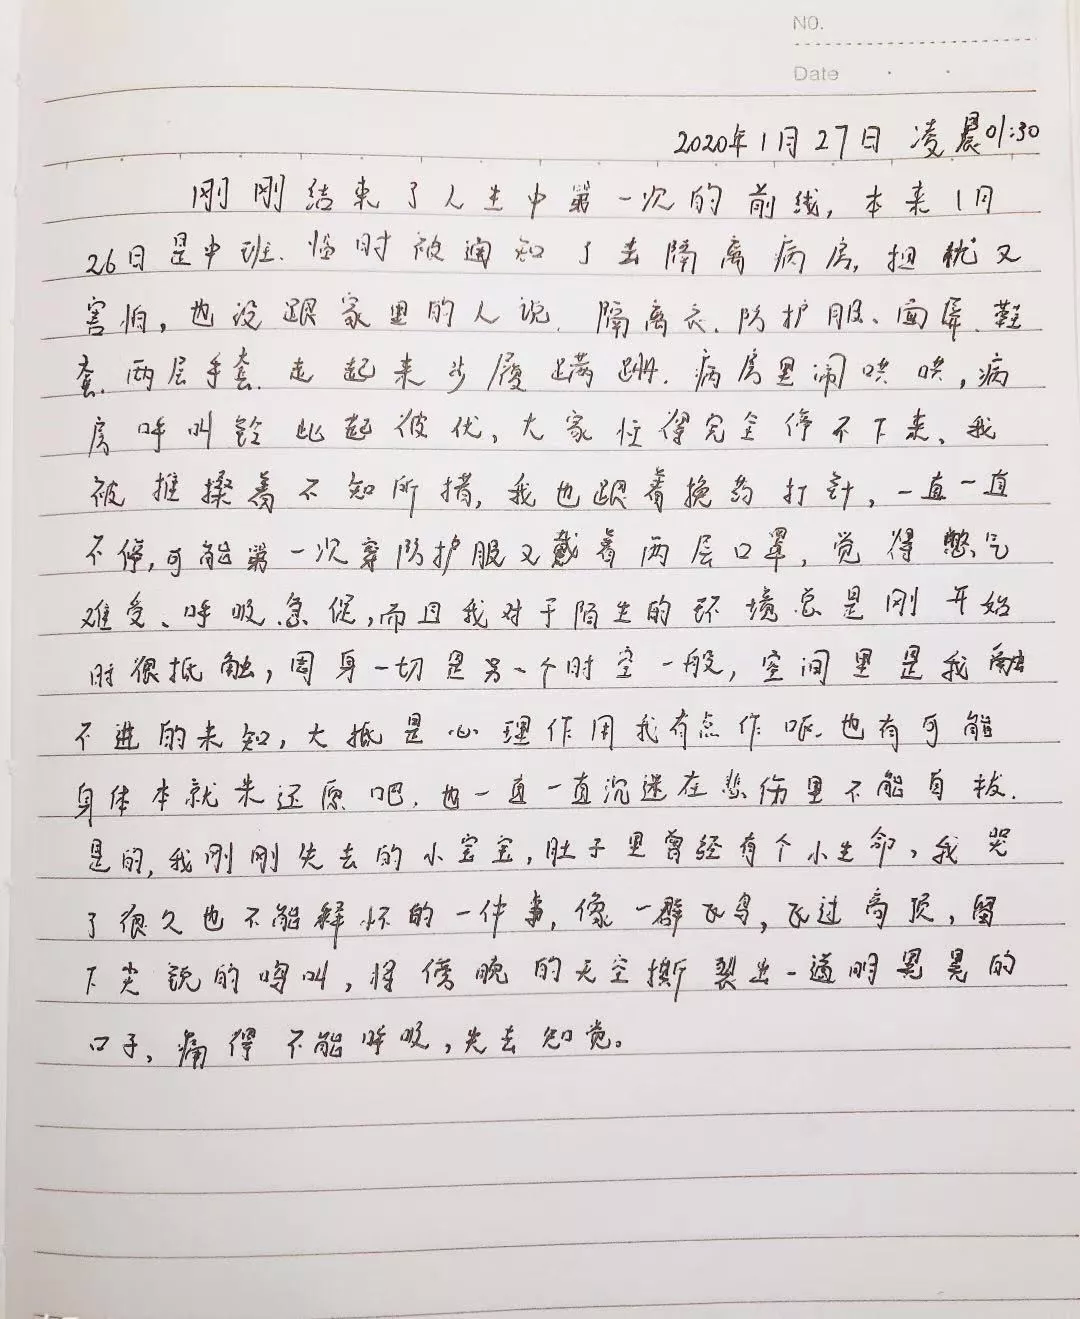 NO.
Date
2020年1月27日 凌晨01:30
刚刚结束了人生中第一次的前线，本来1月
26日是中班、临时被通知了去隔离病房，担忧又
害怕，也没跟家里的人说．隔离衣、防护服、面屏、鞋
套、两层手套．走起来步履蹒跚．病房里闹哄哄，病
房呼叫铃此起彼伏，大家忙得完全停不下来、我
被推搡着不知所措，我也跟着挽药打針，一直一直
不停，可能第一次穿防护服又戴着两层口罩，觉得憋气
难受、呼吸急促，而且我对于陌生的环境总是刚开始
时很抵触，周身一切是另一个时空一般，空间里是我融
不进的未知，大抵是心理作用我有点作呕．也有可能
身体本就未还原吧．也一直一直沉迷在悲伤里不能自拔．
是的，我刚刚失去的小宝宝，肚子里曾经有个小生命、我哭
了很久也不能释怀的一件事，像一群飞鸟，飞过高顶，留
下尖锐的鸣叫，将傍晚的天空撕裂出一道明晃晃的
口子，痛得不能呼吸，失去知觉。